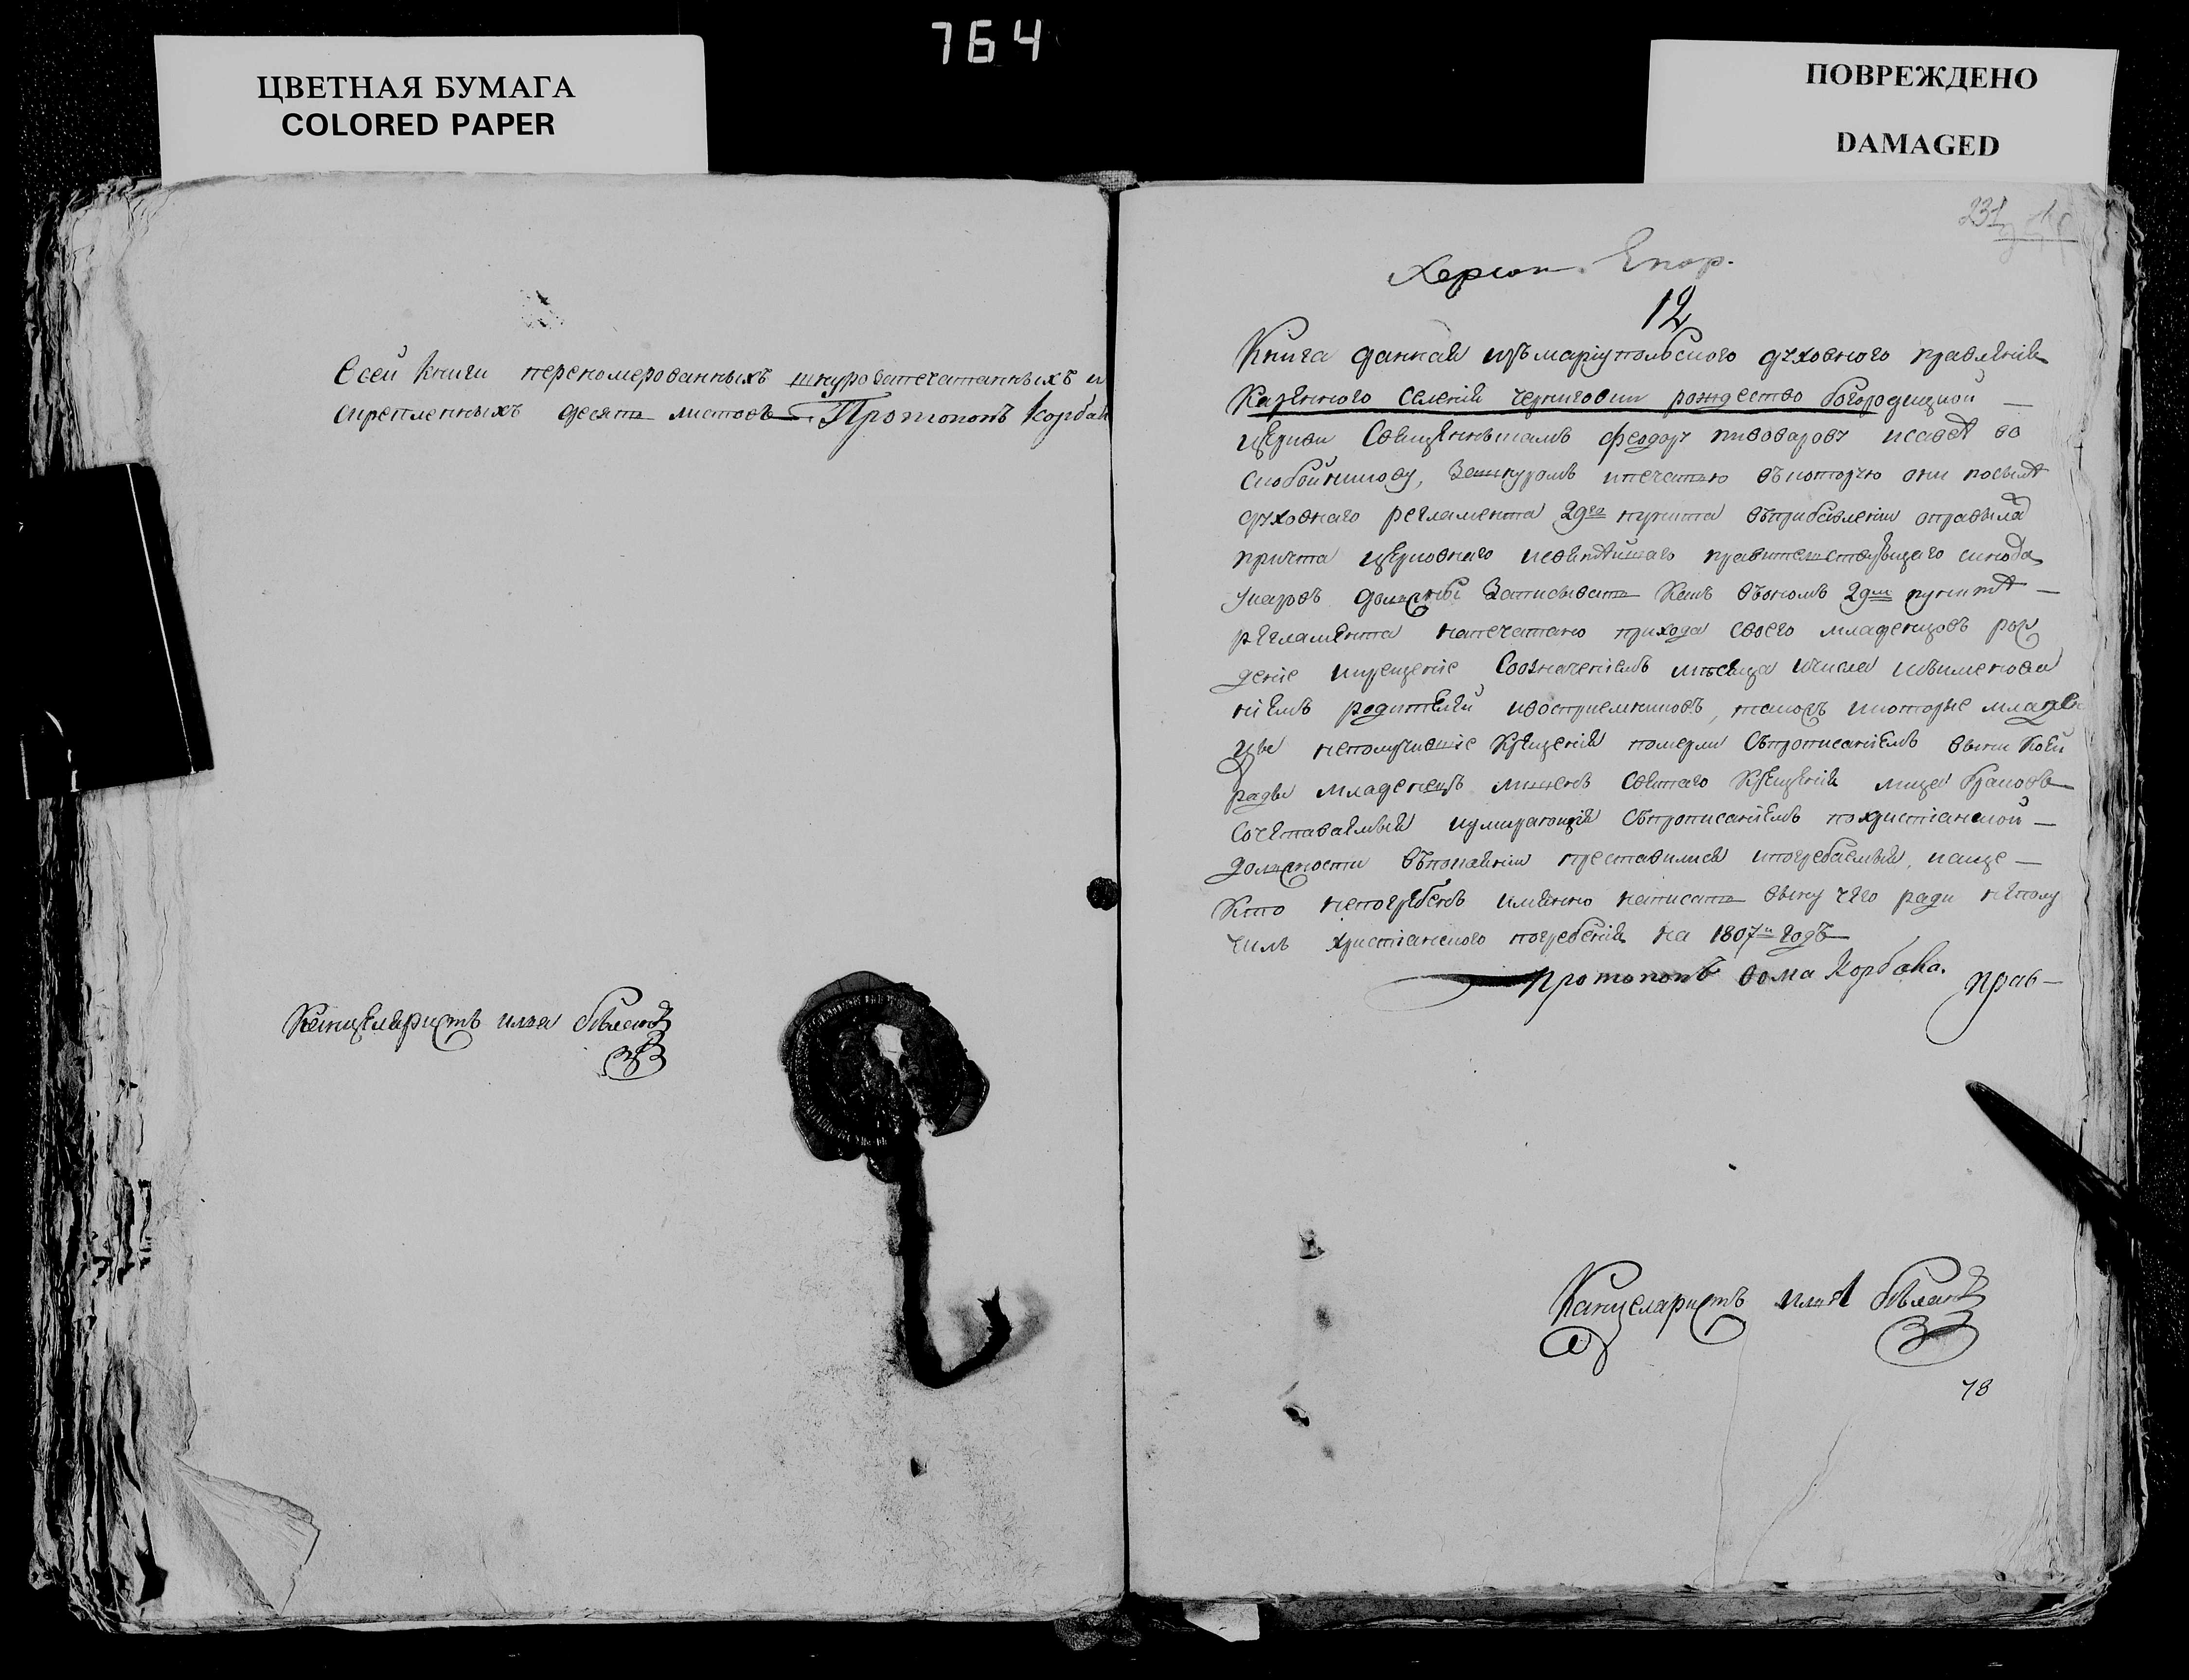 764
ЦВЕТНАЯ БУМАГА
COLORED PAPER
ПОВРЕЖДЕНО
DAMAGED
Всей книги перекомерованныхъ шнурозапечатанныхъ и
скрепленныхъ десять листовъ. Протопопъ Корбак
Канцеляристъ илья
231
Херсон. Епар.
12
Книга данная изъ маріупольского духовного правленія
Казенного Селенія Черниговки рождество богородицкой
церкви Священникамъ феодору пивоварову исавѣ во
скобойникову, Зашнуромъ ипечатью въкоторую они посылѣ
духовнаго регламента 2го пункта въприбавленіи оправилѣ
причта церковнаго исвятѣйшаго правителствующаго синода
указовъ должны Записывать Какъ въономъ 2мъ пунктѣ
регламента напечатано прихода своего младенцовъ рож
деніе икрещеніе Соозначеніемъ мѣсяца ичисла исъименова
ніемъ родителей ивоспріемниковъ, такожъ икоторые младен
цы неполучившіе Крещенія померли Съприписаніемъ вины Коей
ради младенецъ лишенъ Святаго Крещенія лица бракомъ
Сочетаваемыя иумирающія Съприписаніемъ похристіанской
должности въпокаяніи преставилися ипогребаемыя, иаще
Кто непогребенъ имянно написать вину чего ради неполу
чилъ христіанского погребенія на 1807й годъ
Протопопъ Фома Корбака.
прав-
Канцеляристъ илья
78